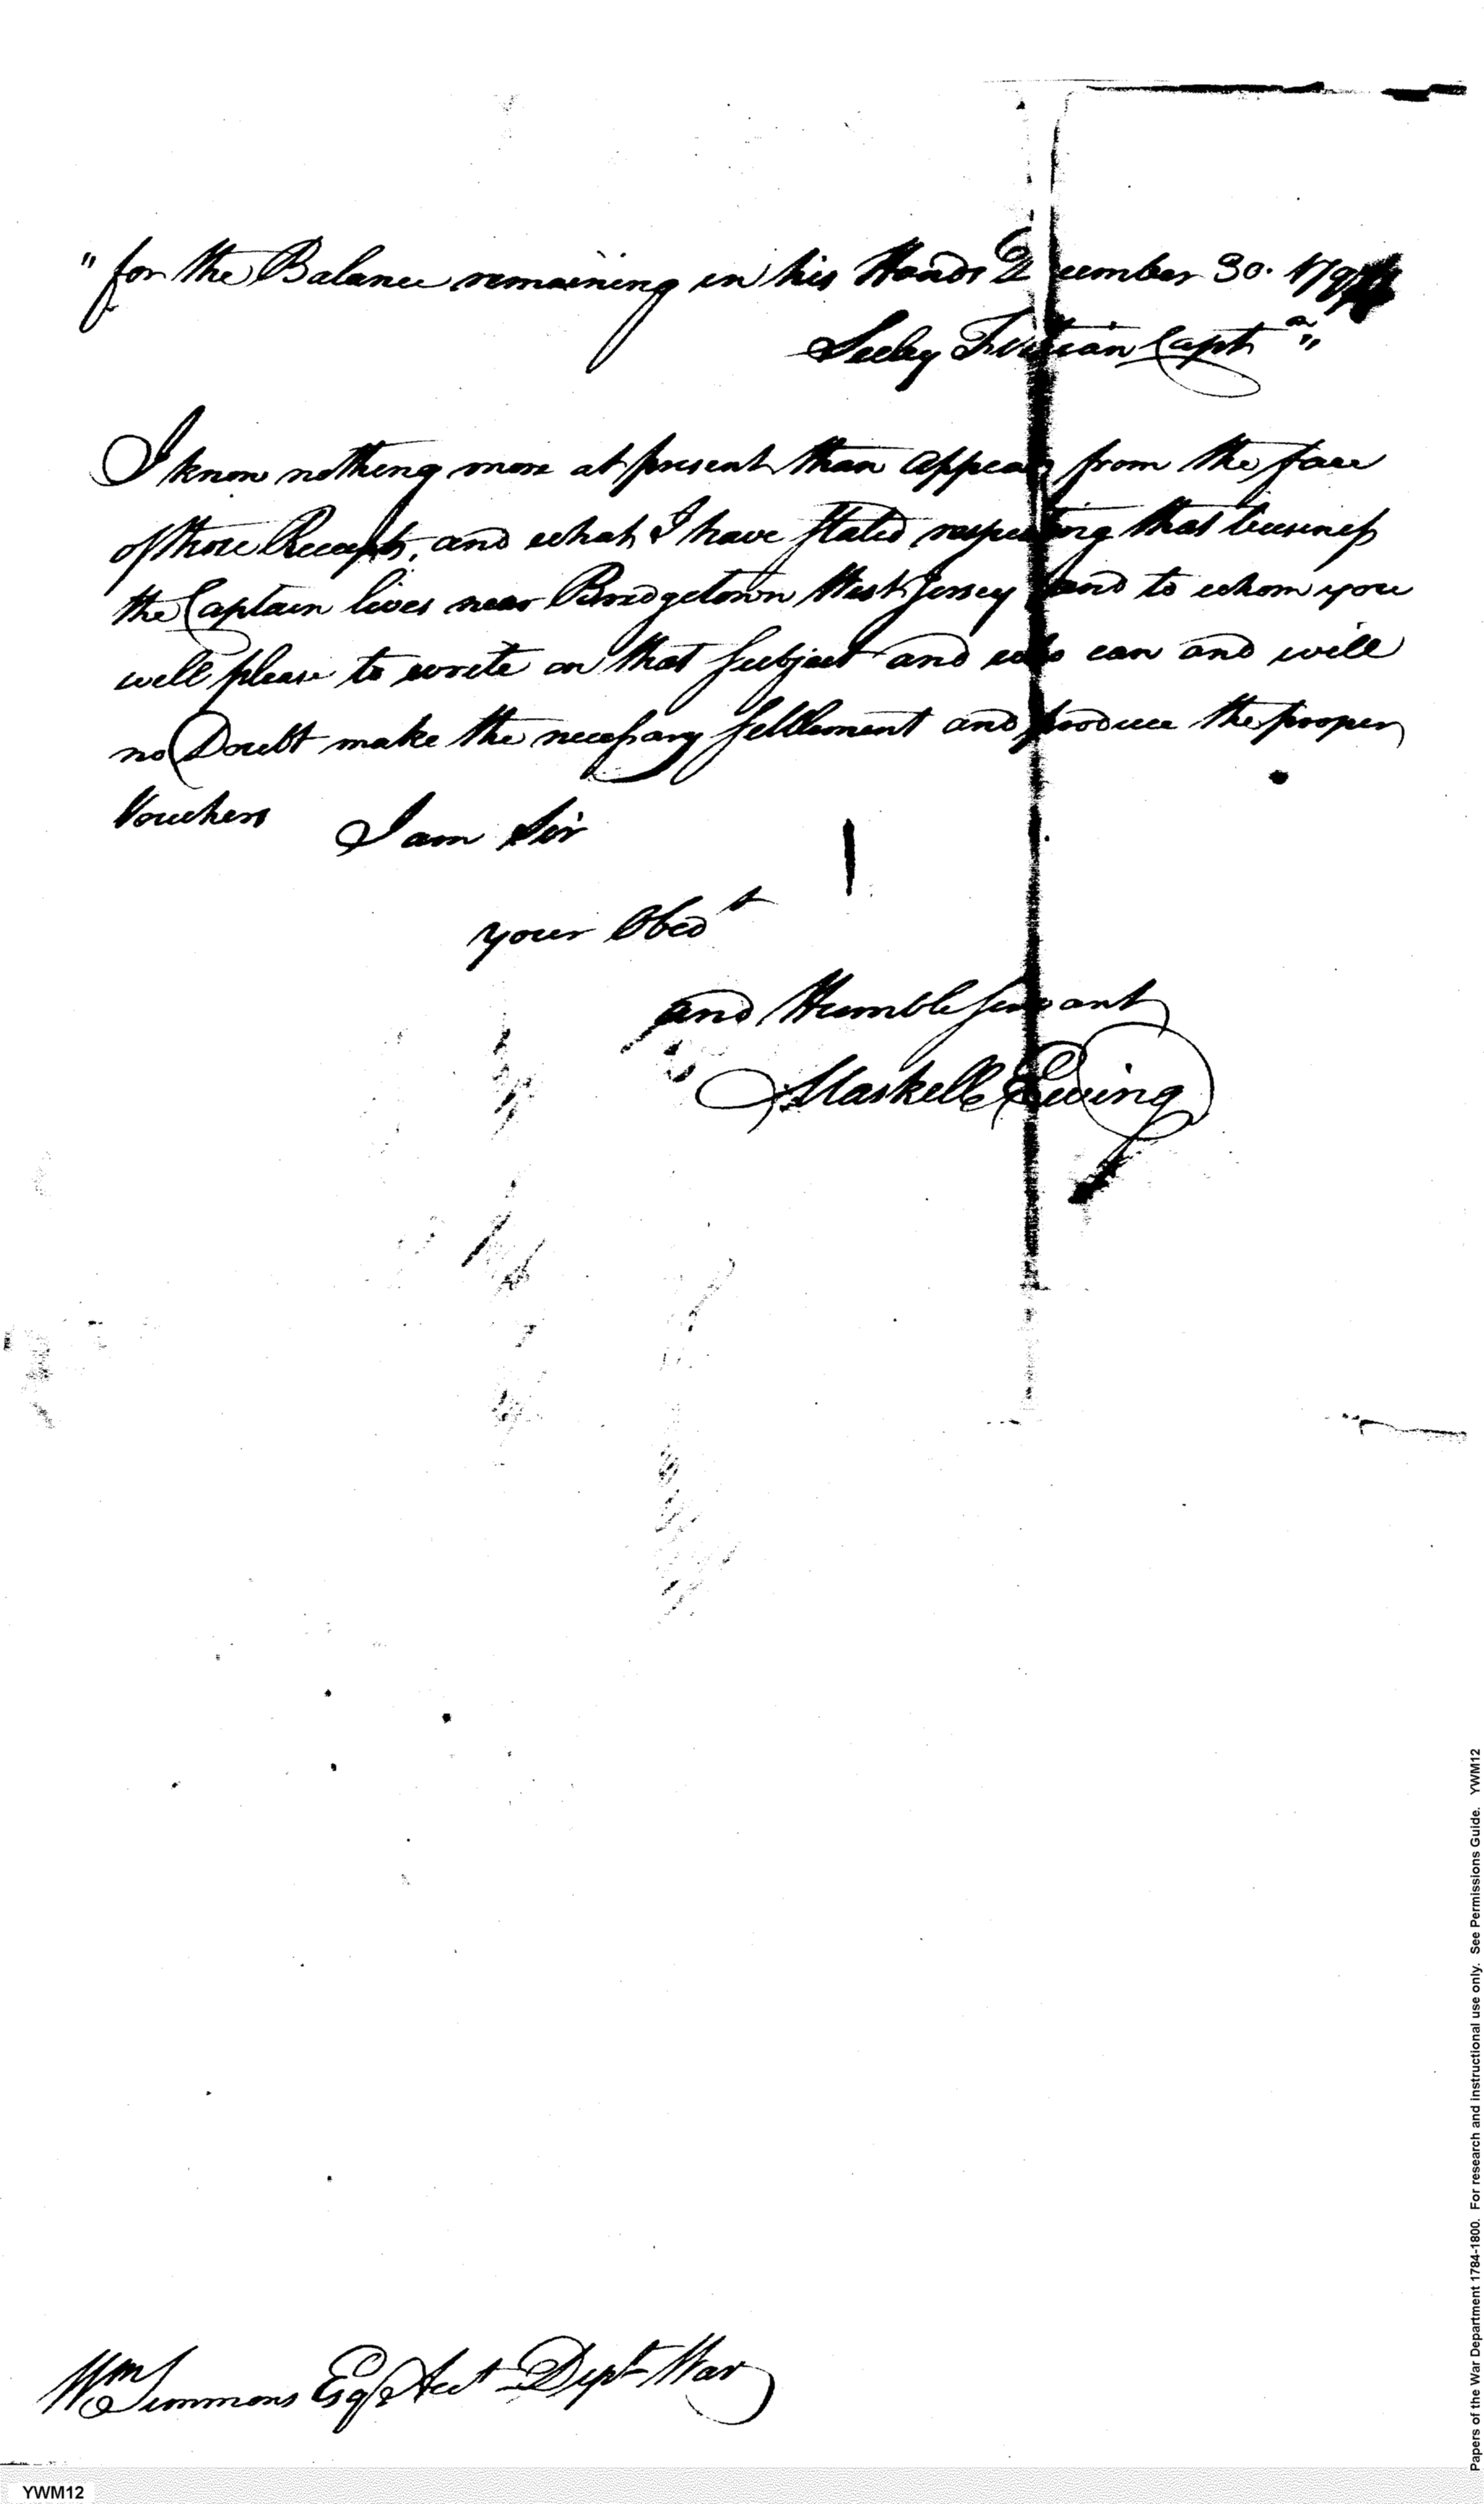 "for the Balance remaining in his Hands December 30. 179
Seeley Fithian Captn"
I know nothing more at present than appears from the face
of those Receipts, and what I have Stated respecting that business
the Captain lives near Bridgetown West Jersey and to whom you
will please to write on that Subject and who can and will
no Doubt make the necessary Settlement and produce the proper
Vouchers I am Sir
your Obedt
and Humble Servant
Maskell Ewing
Wm Simmons Esqr Acct Dept War
Papers of the War Department 1784-1800. For research and instructional use only. See Permissions Guide. YWM12
YWM12